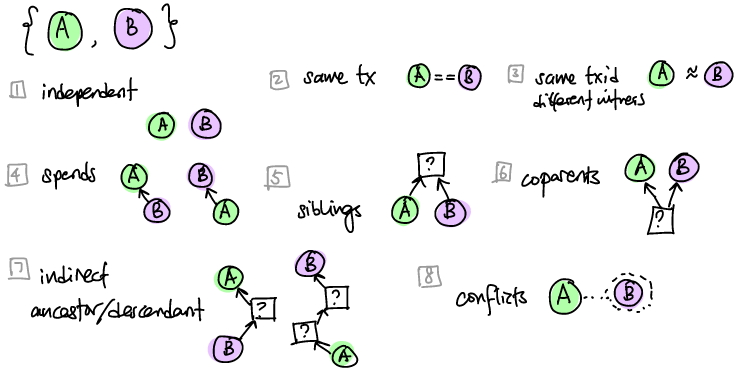 { A , B }
1 independent
A B
2 same tx A == B
3 same txid A ≈ B
different witness
4 spends A B
B A
5 siblings ?
A B
6 coparents A B
?
7 indirect
ancestor/descendant
A ? B
B ? ? A
8 conflicts A B